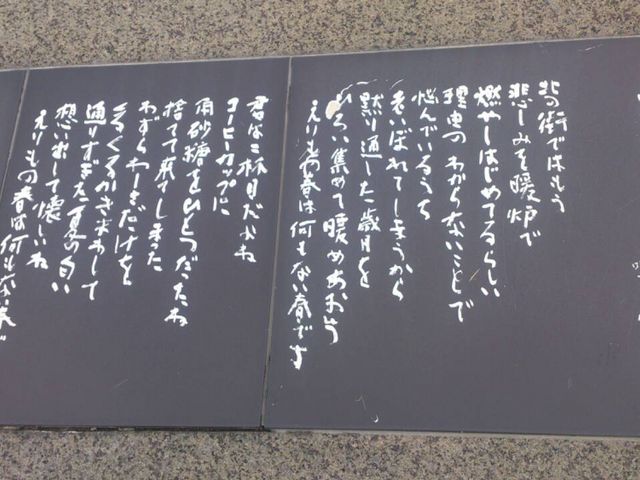 北の街ではもう
悲しみを暖炉で
燃やしはじめてるらしい
理由のわからないことで
悩んでいるうち
老いぼれてしまうから
黙り通した歳月を
ひろい集めて暖めあおう
えりもの春は何もない春です
君は二杯目だよね
コーヒーカップに
角砂糖をひとつだったね
捨てて来てしまった
わずらわしさだけを
くるくるかきまわして
通りすぎた夏の匂い
想い出して懐しいね
えりもの春は何もない春で